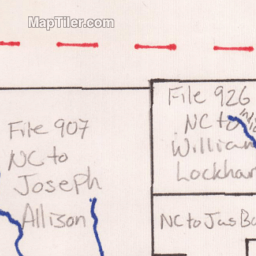 MapTiler.com
File 907
NC to
Joseph
Allison
File 926
NC to
William
Lockhar
NC to Jas Ba